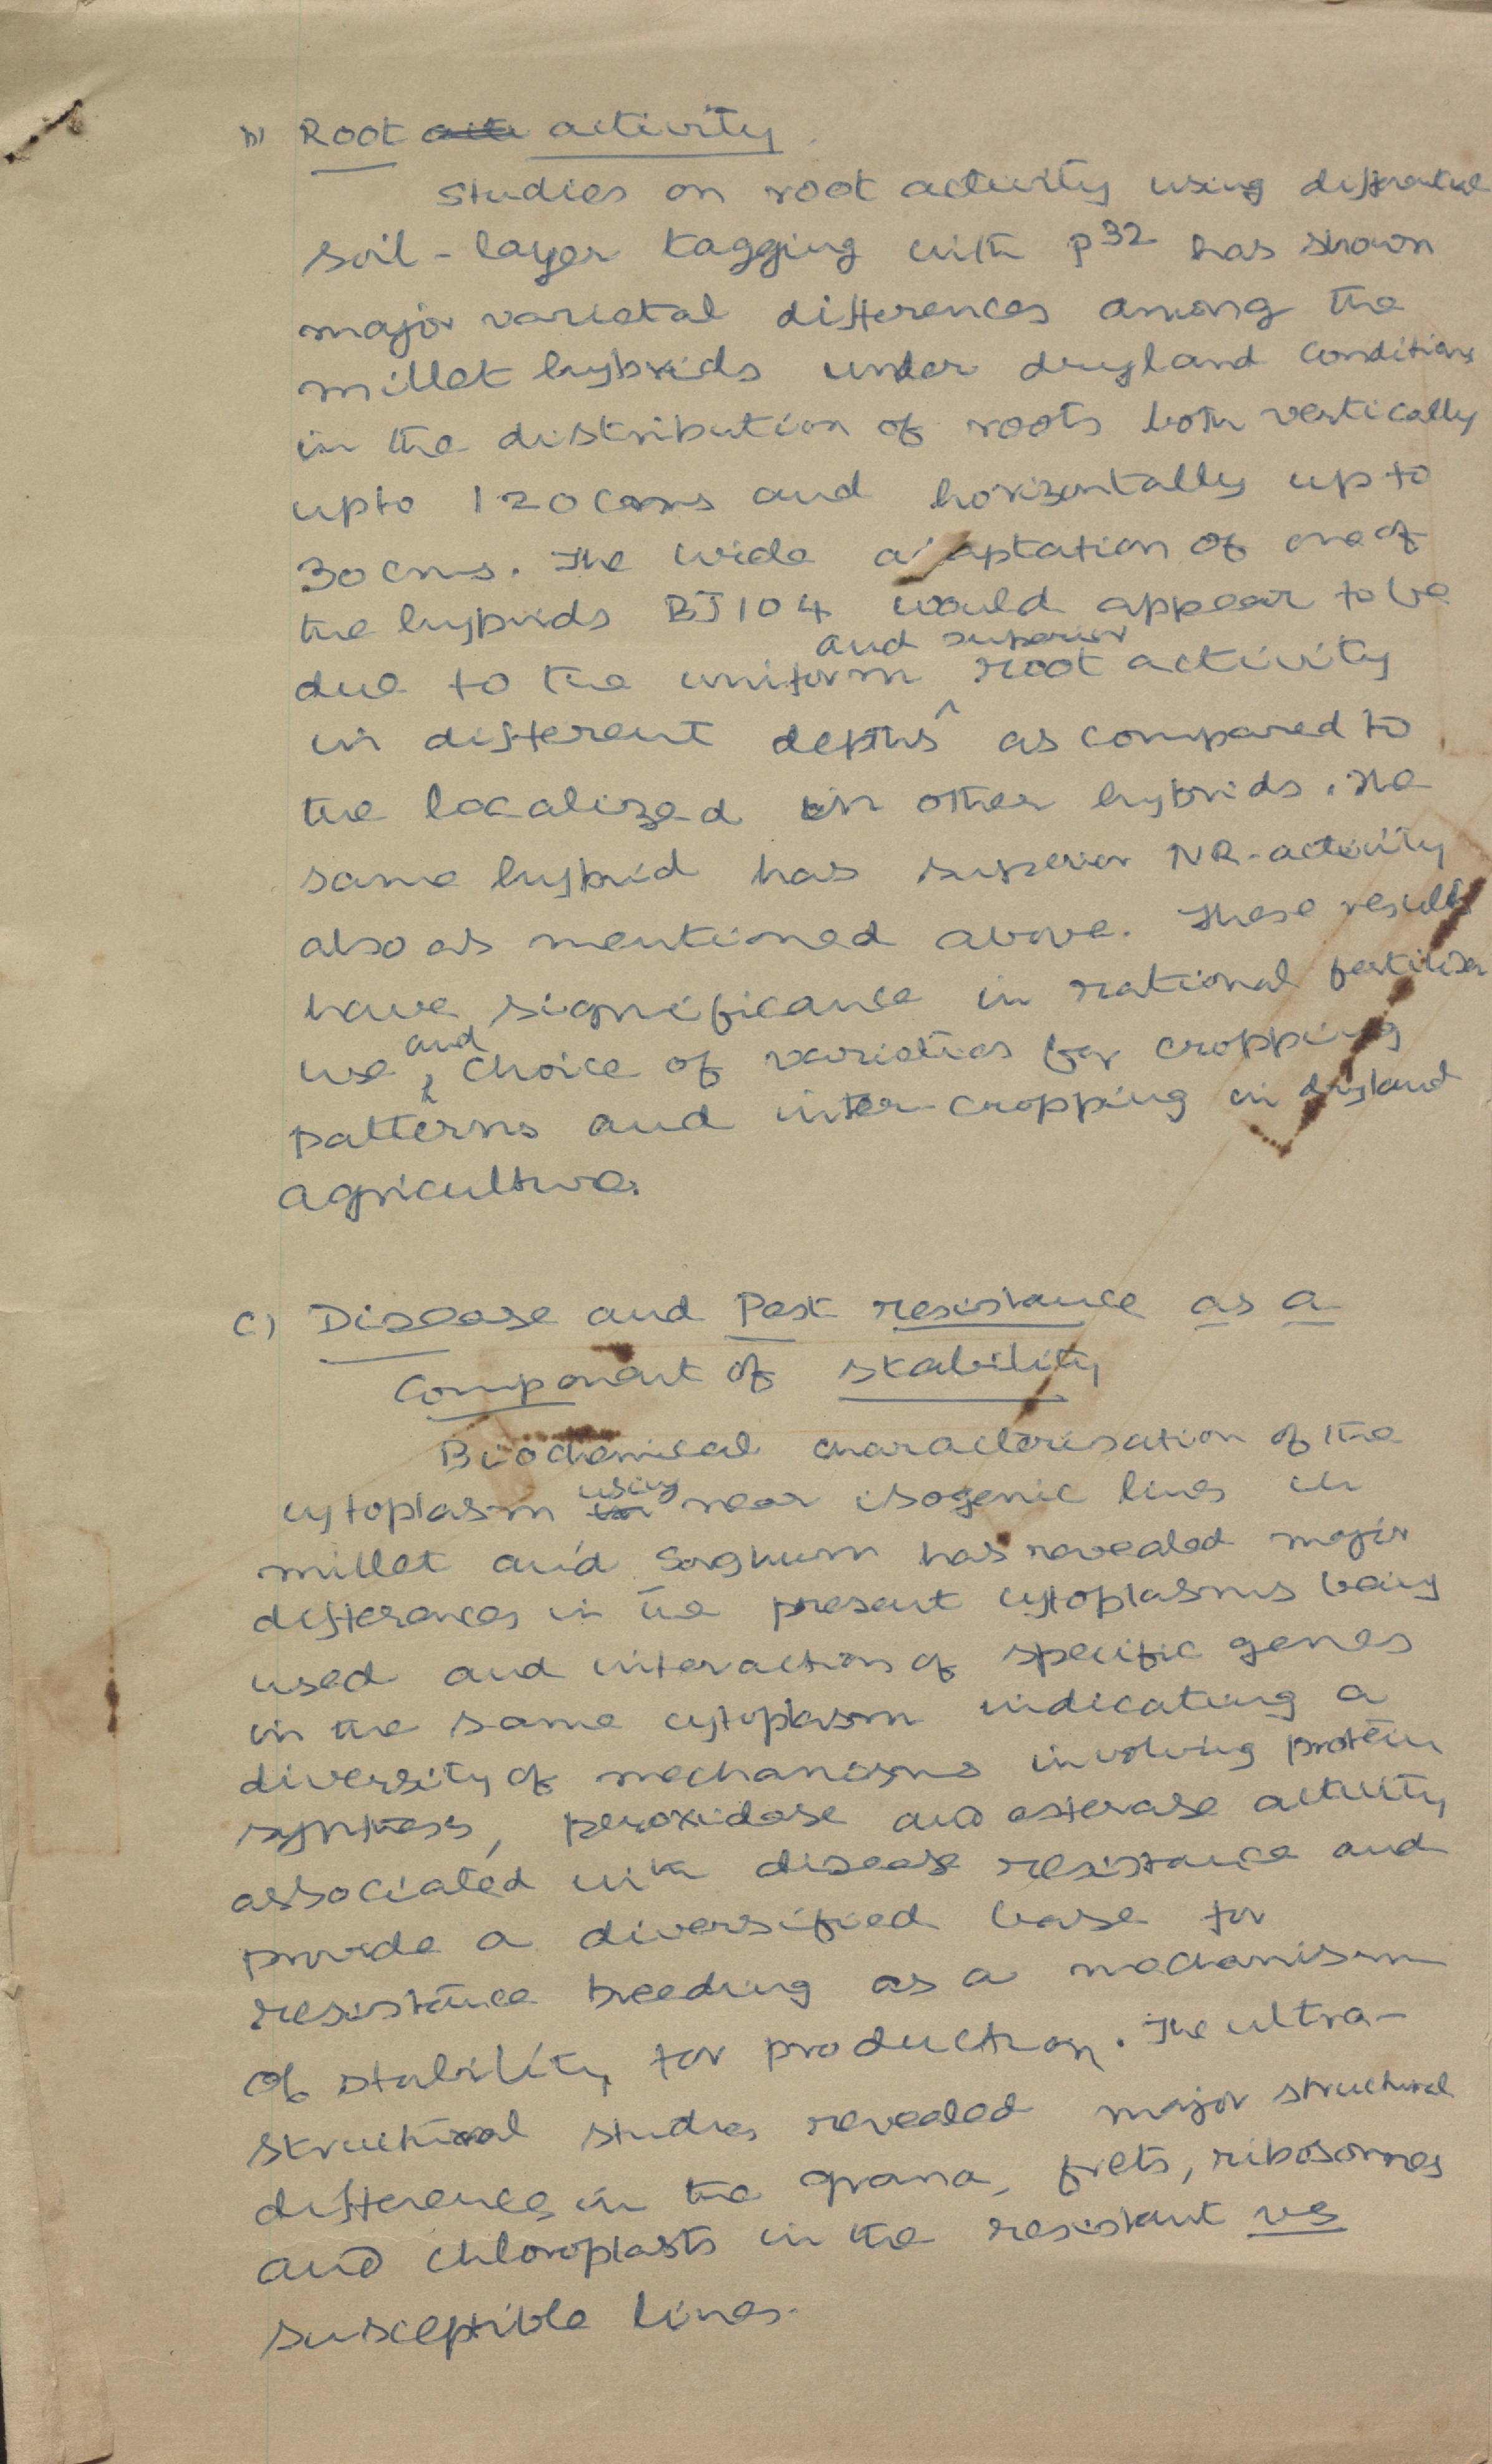 b) Root activity
Studies on root activity using differential
soil-layer tagging with P32 has shown
major varietal differences among the
millet hybrids under dryland conditions
in the distribution of roots both vertically
upto 120 cms and horizontally up to
30 cms. The wide adaptation of one of
the hybrids BJ104 would appear to be
and superior
due to the uniform root activity
in different depths ^ as compared to
the localized in other hybrids. The
same hybrid has superior NR-activity
also as mentioned above. These results
have significance in rational fertiliser
and
use, choice of varieties for cropping
patterns and inter-cropping in dryland
agriculture.
c) Disease and Pest resistance as a
Component of stability
Biochemical characterisation of the
cytoplasm using near isogenic lines in
millet and Sorghum has revealed major
differences in the present cytoplasms being
used and interaction of specific genes
in the same cytoplasm indicating a
diversity of mechanisms involving protein
synthesis, peroxidase and esterase activity
associated with disease resistance and
provide a diversified base for
resistance breeding as a mechanism
of stability for production. The ultra-
structural studies revealed major structural
differences in the grana, frets, ribosomes
and chloroplasts in the resistant vs
susceptible lines.